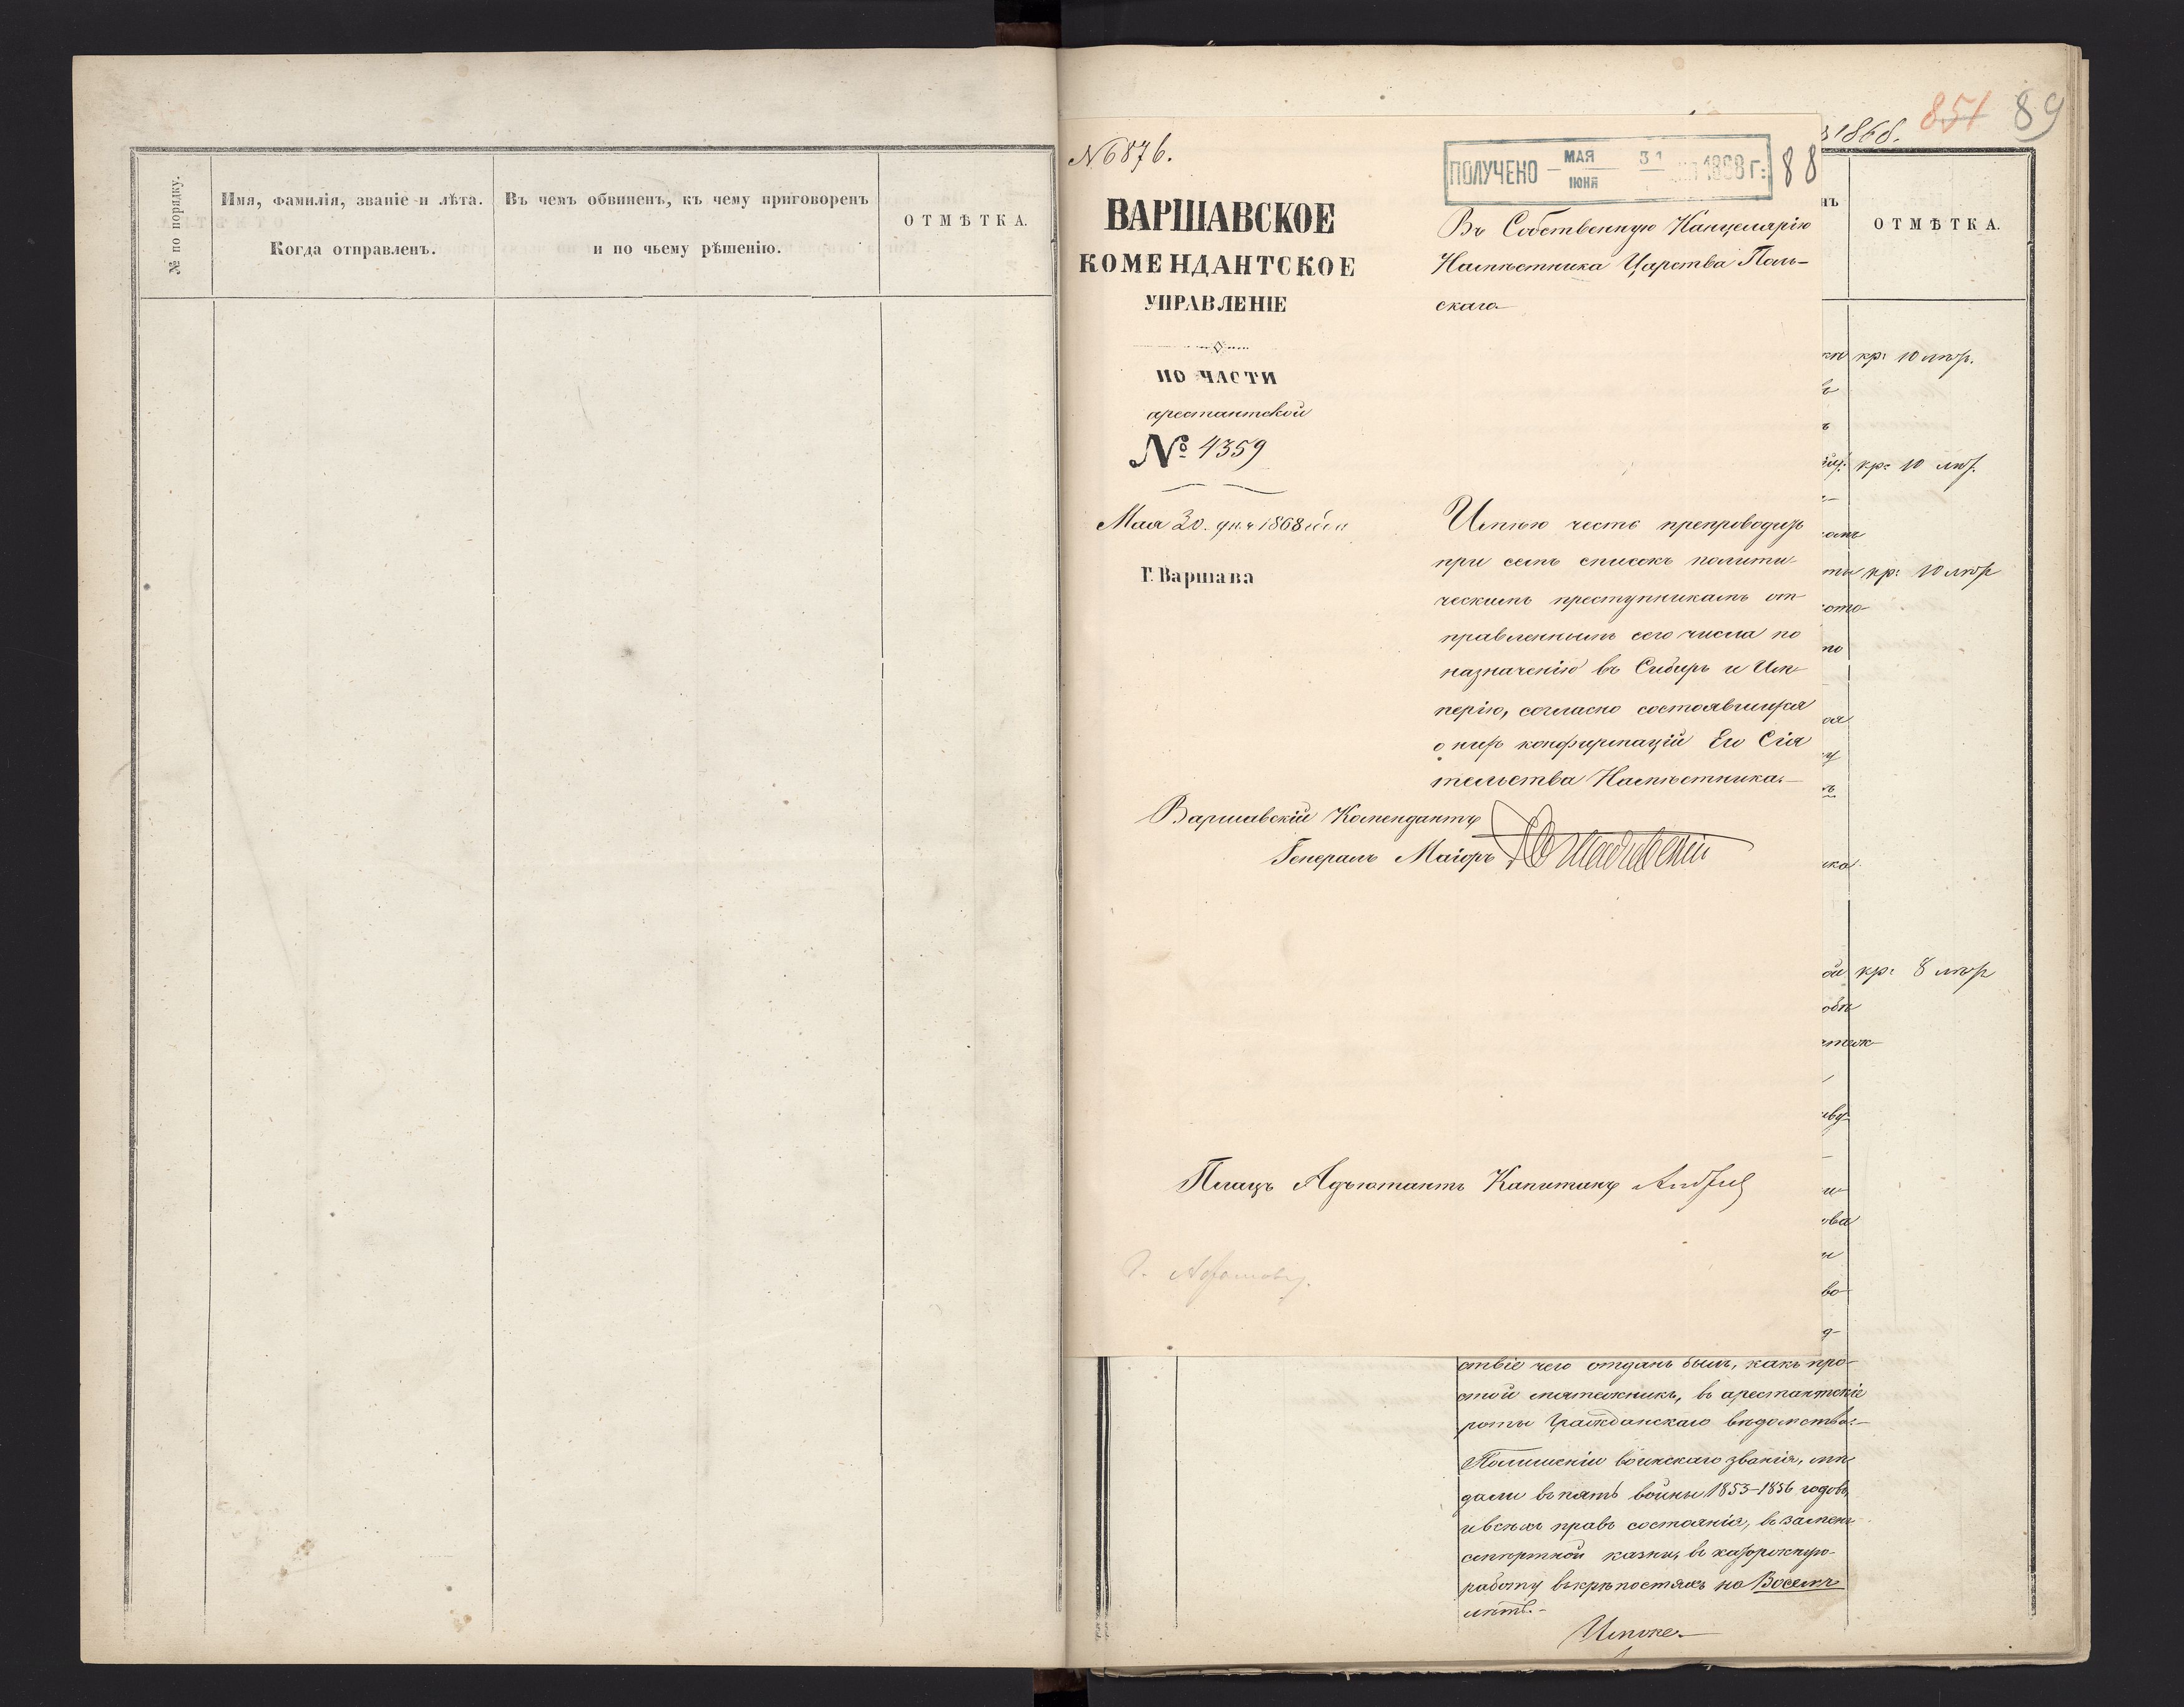 № по порядку.
Имя, фамилія, званіе и лѣта.
Когда отправленъ.
Въ чемъ обвиненъ, къ чему приговоренъ
и по чьему рѣшенію.
ОТМѢТКА.
851 89
1868.
№ 6876.
ПОЛУЧЕНО МАЯ ИЮНЯ 31 1868 г.
88
ВАРШАВСКОЕ
КОМЕНДАНТСКОЕ
УПРАВЛЕНІЕ
ПО ЧАСТИ
арестантской
№ 4359
Мая 30. дня 1868 года
Г. Варшава
Въ Собственную Канцелярію
Намѣстника Царства Поль-
скаго
Имѣю честь препроводить
при семъ списокъ полити-
ческимъ преступникамъ от-
правленнымъ сего числа по
назначенію въ Сибирь и Им-
перію, согласно состоявшихся
о нихъ конфирмацій Его Сія
тельства Намѣстника.—
Варшавскій Комендантъ
Генералъ Маіоръ
Плацъ Адъютантъ Капитанъ
ОТМѢТКА.
кр: 10 лѣтъ.
кр: 10 лѣт.
кр: 10 лѣтъ
кр: 8 лѣтъ
ствіе чего отданъ былъ, какъ про-
стой мятежникъ, въ арестантскіе
роты Гражданскаго вѣдомства.—
По лишеніи воинскаго званія, ме-
дали въ память войны 1853-1856 годовъ,
и всѣхъ правъ состоянія, въ замѣнъ
смертной казни, въ каторжную
работу въ крѣпостяхъ на Восемь
лѣтъ.-